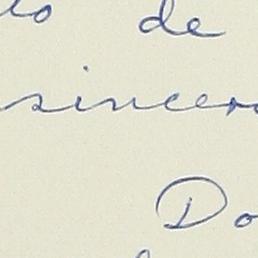 lo de
sincer
Do